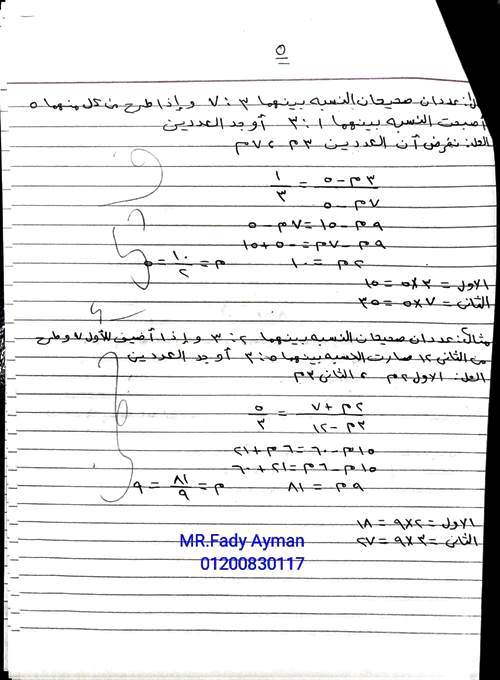 ٥
مثال: عددان صحيحان النسبه بينهما ٣ : ٧ وإذا طرح من كل منهما ٥
أصبحت النسبه بينهما ١ : ٣ أوجد العددين
الحل: نفرض أن العددين ٣م ، ٧م
٣م - ٥ / ٧م - ٥ = ١ / ٣
٩م - ١٥ = ٧م - ٥
٩م - ٧م = -٥ + ١٥
٢م = ١٠ م = ١٠ / ٢ = ٥
الاول = ٣ × ٥ = ١٥
الثانى = ٧ × ٥ = ٣٥
مثال: عددان صحيحان النسبه بينهما ٢ : ٣ وإذا أضيف للأول ٧ وطرح
من الثانى ١٢ صارت النسبه بينهما ٥ : ٣ أوجد العددين
الحل: الاول ٢م ، الثانى ٣م
٢م + ٧ / ٣م - ١٢ = ٥ / ٣
١٥م - ٦٠ = ٦م + ٢١
١٥م - ٦م = ٢١ + ٦٠
٩م = ٨١ م = ٨١ / ٩ = ٩
الاول = ٢ × ٩ = ١٨
الثانى = ٣ × ٩ = ٢٧
MR.Fady Ayman
01200830117